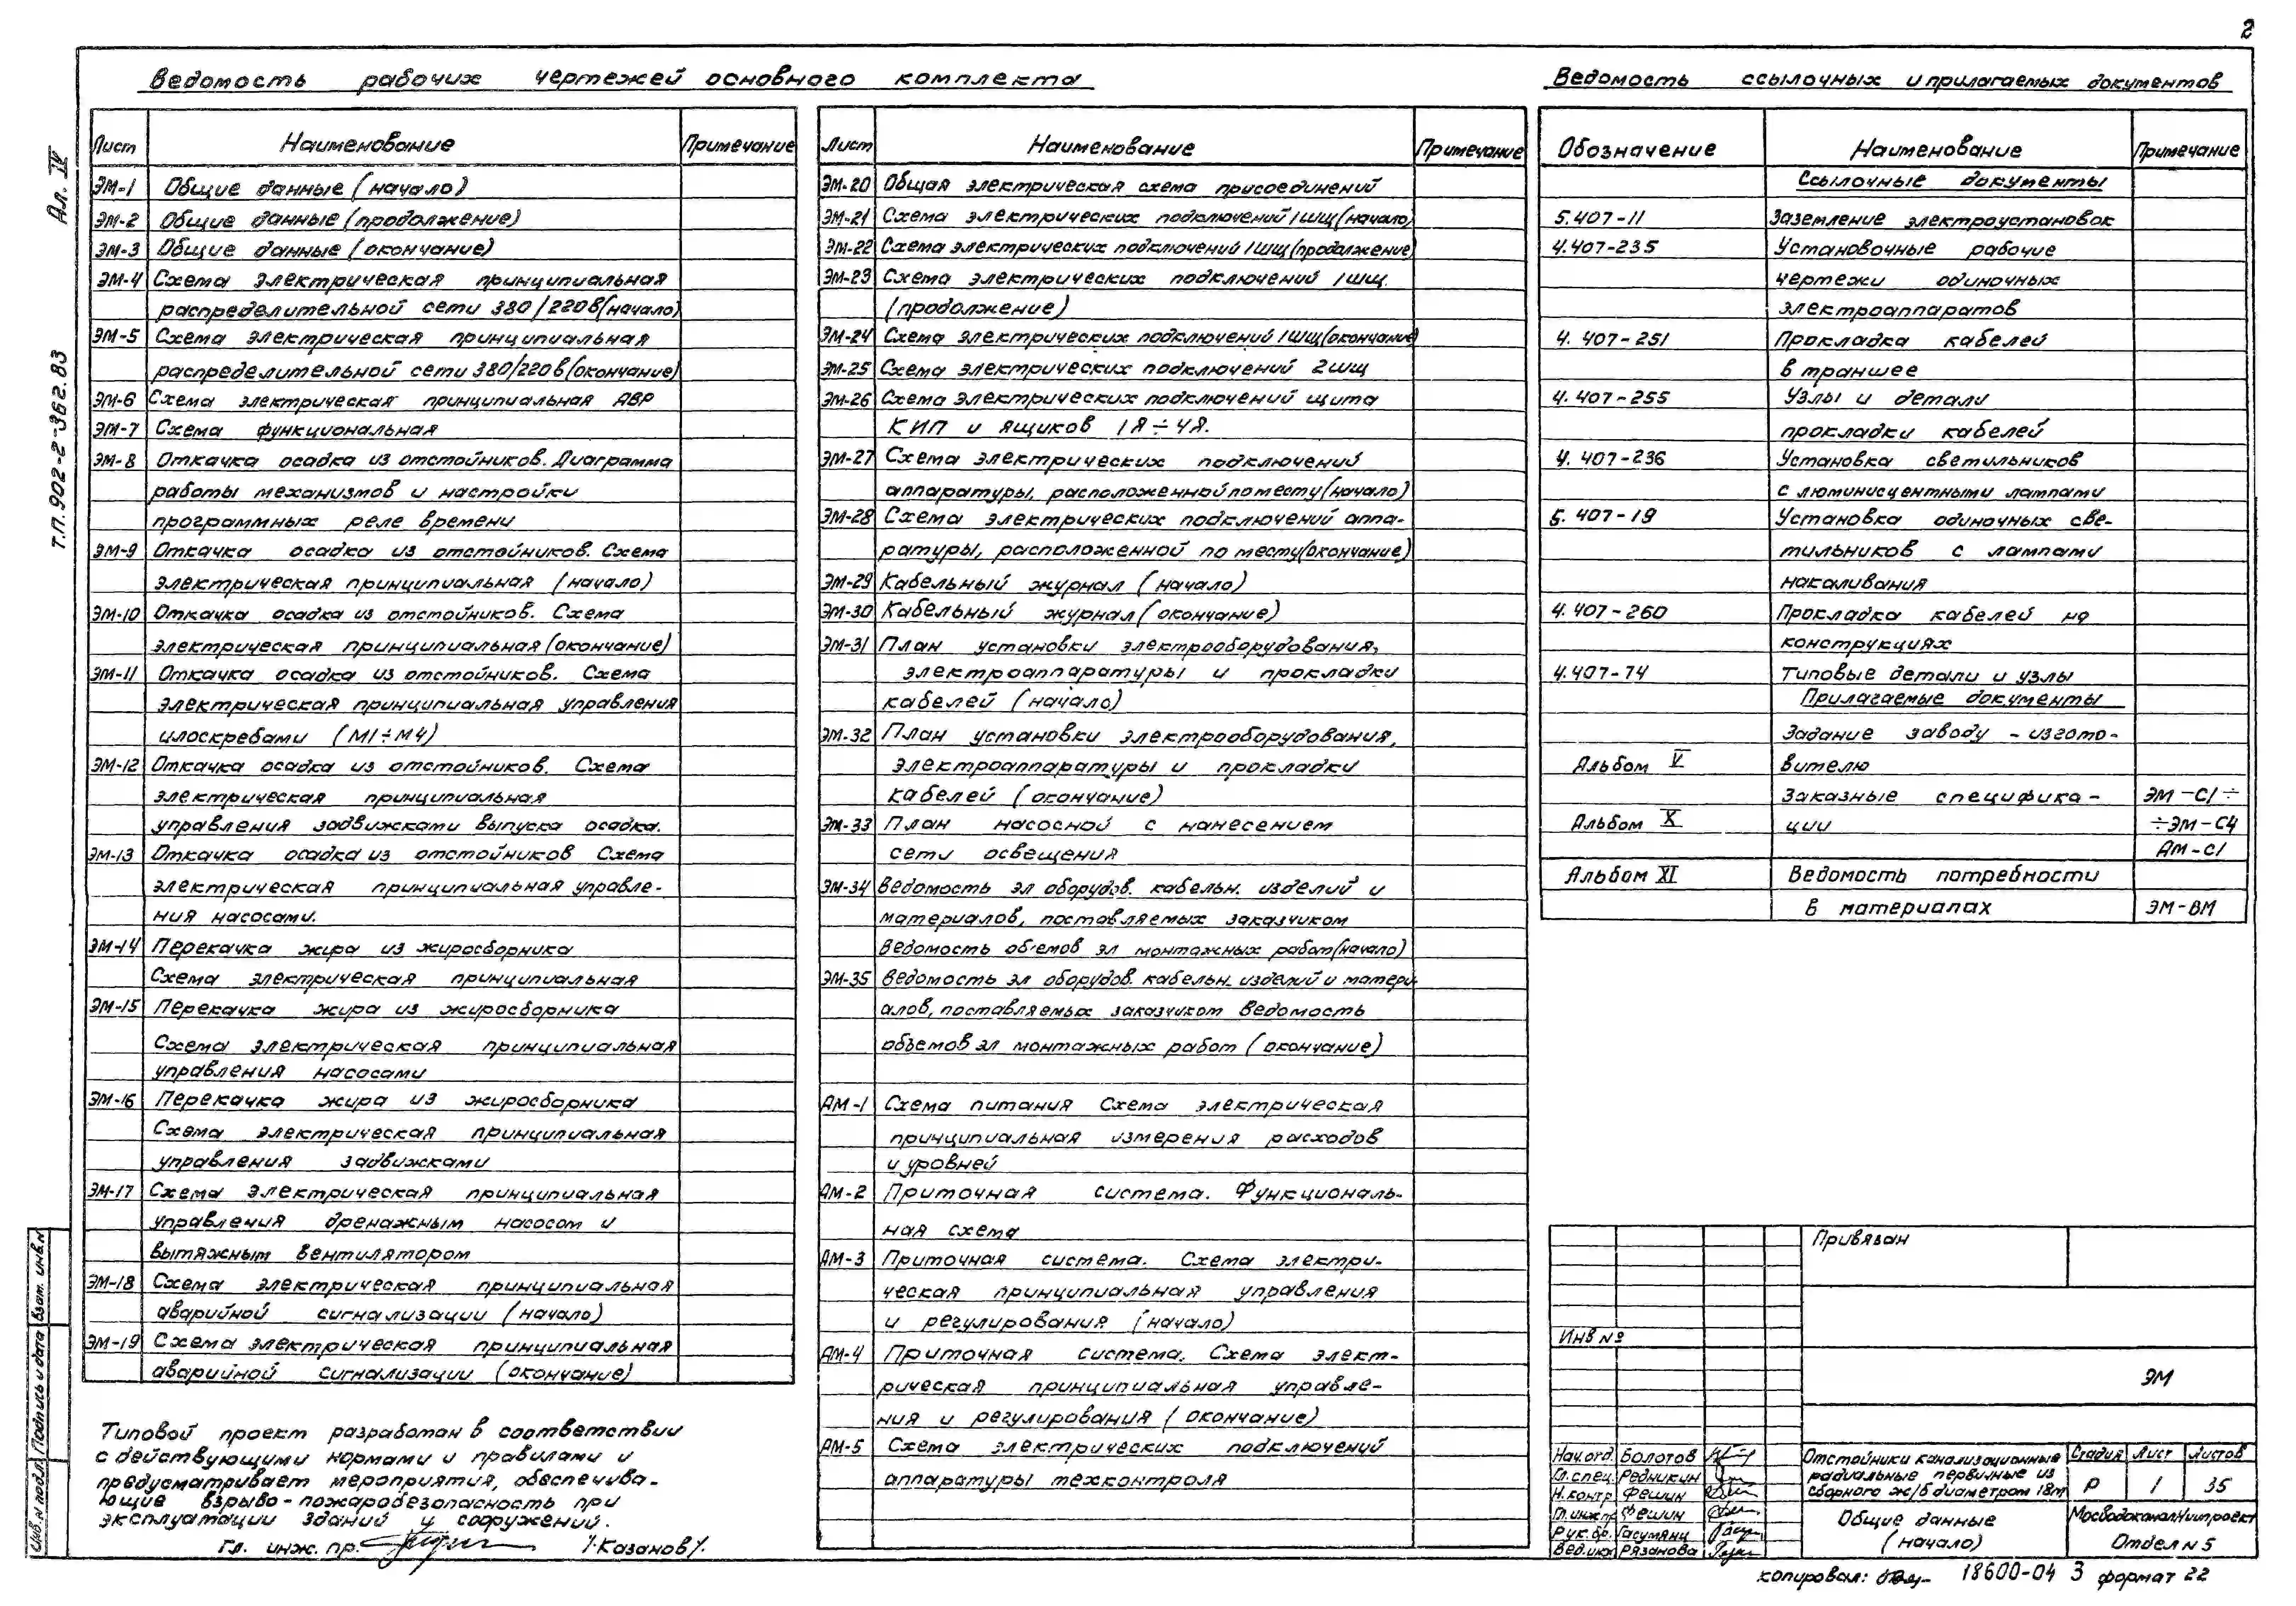 2
Ведомость рабочих чертежей основного комплекта
Ал. IV
т.п. 902-2-362.83
Лист Наименование Примечание
ЭМ-1 Общие данные (начало)
ЭМ-2 Общие данные (продолжение)
ЭМ-3 Общие данные (окончание)
ЭМ-4 Схема электрическая принципиальная
распределительной сети 380/220В (начало)
ЭМ-5 Схема электрическая принципиальная
распределительной сети 380/220В (окончание)
ЭМ-6 Схема электрическая принципиальная АВР
ЭМ-7 Схема функциональная
ЭМ-8 Откачка осадка из отстойников. Диаграмма
работы механизмов и настройки
программных реле времени
ЭМ-9 Откачка осадка из отстойников. Схема
электрическая принципиальная (начало)
ЭМ-10 Откачка осадка из отстойников. Схема
электрическая принципиальная (окончание)
ЭМ-11 Откачка осадка из отстойников. Схема
электрическая принципиальная управления
илоскребами (М1÷М4)
ЭМ-12 Откачка осадка из отстойников. Схема
электрическая принципиальная
управления задвижками выпуска осадка.
ЭМ-13 Откачка осадка из отстойников Схема
электрическая принципиальная управле-
ния насосами.
ЭМ-14 Перекачка жира из жиросборника
Схема электрическая принципиальная
ЭМ-15 Перекачка жира из жиросборника
Схема электрическая принципиальная
управления насосами
ЭМ-16 Перекачка жира из жиросборника
Схема электрическая принципиальная
управления задвижками
ЭМ-17 Схема электрическая принципиальная
управления дренажным насосом и
вытяжным вентилятором
ЭМ-18 Схема электрическая принципиальная
аварийной сигнализации (начало)
ЭМ-19 Схема электрическая принципиальная
аварийной сигнализации (окончание)
Типовой проект разработан в соответствии
с действующими нормами и правилами и
предусматривает мероприятия, обеспечива-
ющие взрыво-пожаробезопасность при
эксплуатации зданий и сооружений.
Гл. инж. пр. /Казанов/.
Лист Наименование Примечание
ЭМ-20 Общая электрическая схема присоединений
ЭМ-21 Схема электрических подключений 1ШЩ (начало)
ЭМ-22 Схема электрических подключений 1ШЩ (продолжение)
ЭМ-23 Схема электрических подключений 1ШЩ.
(продолжение)
ЭМ-24 Схема электрических подключений 1ШЩ (окончание)
ЭМ-25 Схема электрических подключений 2ШЩ
ЭМ-26 Схема электрических подключений щита
КИП и ящиков 1Я÷4Я.
ЭМ-27 Схема электрических подключений
аппаратуры, расположенной по месту (начало)
ЭМ-28 Схема электрических подключений аппа-
ратуры, расположенной по месту (окончание)
ЭМ-29 Кабельный журнал (начало)
ЭМ-30 Кабельный журнал (окончание)
ЭМ-31 План установки электрооборудования,
электроаппаратуры и прокладки
кабелей (начало)
ЭМ-32 План установки электрооборудования,
электроаппаратуры и прокладки
кабелей (окончание)
ЭМ-33 План насосной с нанесением
сети освещения
ЭМ-34 Ведомость эл оборудов. кабельн. изделий и
материалов, поставляемых заказчиком
Ведомость объемов эл монтажных работ (начало)
ЭМ-35 Ведомость эл оборудов. кабельн. изделий и матери
алов, поставляемых заказчиком Ведомость
объемов эл монтажных работ (окончание)
АМ-1 Схема питания Схема электрическая
принципиальная измерения расходов
и уровней
АМ-2 Приточная система. Функциональ-
ная схема
АМ-3 Приточная система. Схема электри-
ческая принципиальная управления
и регулирования (начало)
АМ-4 Приточная система. Схема элект-
рическая принципиальная управле-
ния и регулирования (окончание)
АМ-5 Схема электрических подключений
аппаратуры техконтроля
Ведомость ссылочных и прилагаемых документов
Обозначение Наименование Примечание
Ссылочные документы
5.407-11 Заземление электроустановок
4.407-235 Установочные рабочие
чертежи одиночных
электроаппаратов
4.407-251 Прокладка кабелей
в траншее
4.407-255 Узлы и детали
прокладки кабелей
4.407-236 Установка светильников
с люминисцентными лампами
5.407-19 Установка одиночных све-
тильников с лампами
накаливания
4.407-260 Прокладка кабелей на
конструкциях
4.407-74 Типовые детали и узлы
Прилагаемые документы
Задание заводу-изгото-
Альбом V вителю
Заказные специфика- ЭМ-С1÷
Альбом X ции ÷ЭМ-С4
АМ-С1
Альбом XI Ведомость потребности
в материалах ЭМ-ВМ
Привязан
Инв №
ЭМ
Нач.отд. Болотов
Гл.спец. Редникин
Н.контр Фешин
Гл.инж.пр Фешин
Рук.бр. Гасумянц
Вед.инж Рязанова
Отстойники канализационные
радиальные первичные из
сборного ж/б диаметром 18м
Стадия Лист Листов
Р 1 35
Общие данные
(начало)
МосводоканалНиипроект
Отдел №5
Инв.№ подл. Подпись и дата Взам. инв.№
копировал: 18600-04 3 формат 22